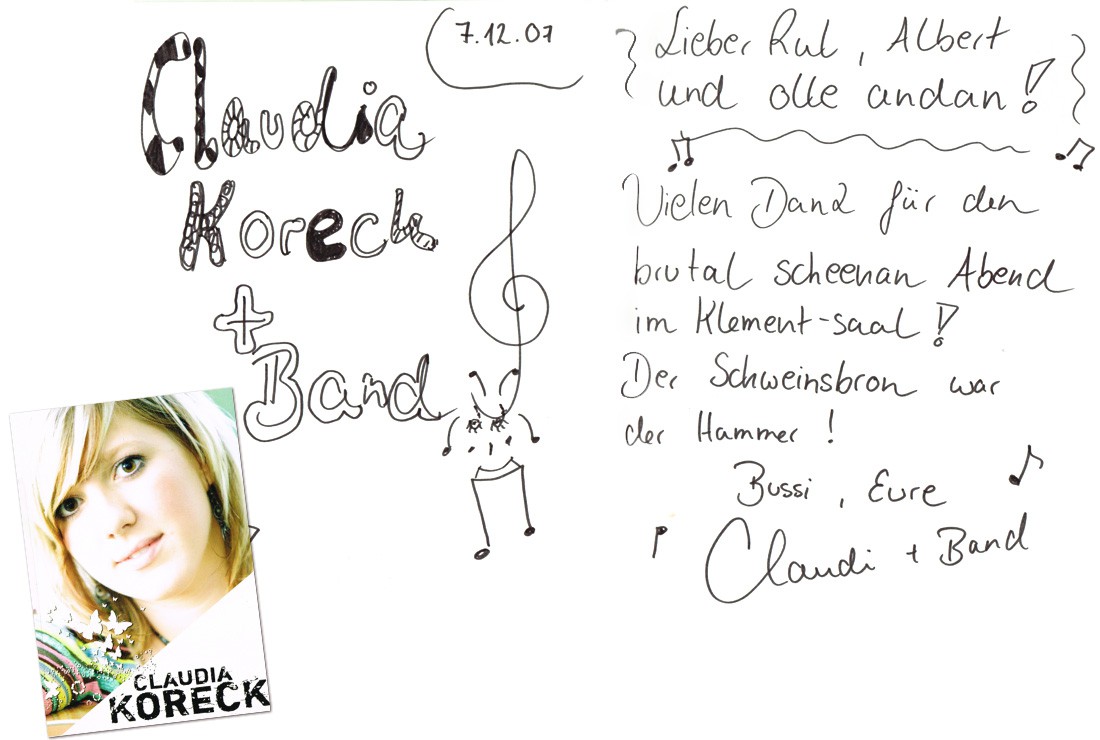 Claudia
Koreck
+
Band
7.12.07
Lieber Rul, Albert
und olle andan!
Vielen Dank für den
brutal scheenan Abend
im Klement-saal!
Der Schweinsbron war
der Hammer!
Bussi, Eure
Claudi + Band
CLAUDIA
KORECK